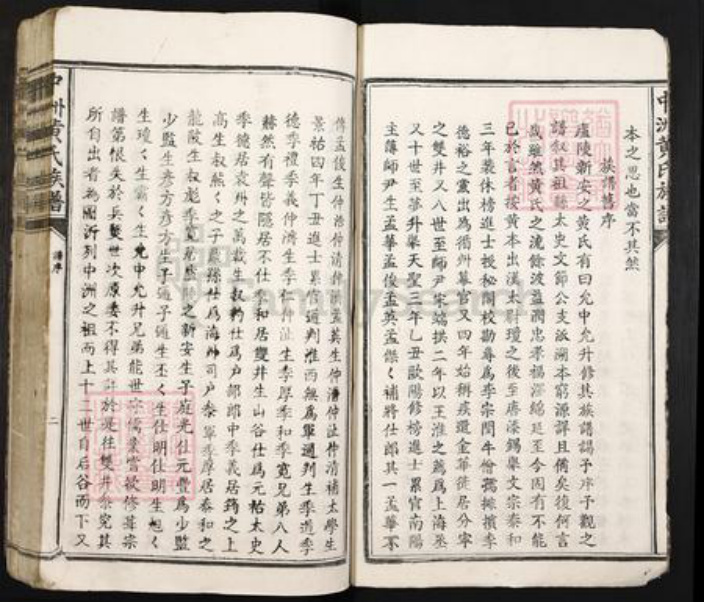 本之思也當不其然
族譜舊序
廬陵新安之黃氏有曰允中允升修其族譜謁予序予觀之
譜叙其祖縣太史文節公支派溯本窮源詳且備矣後何言
哉雖然黃氏之流餘波益潤忠孝福澤綿延至今固有不能
已於言者按黃本出漢太尉瓊之後至唐漆錫舉文宗泰和
三年裴休榜進士授秘閣校勘尋爲李宗閔牛僧孺擯李
德裕之黨出為循州幕官又四年始稱疾還金華徙居分寧
之雙井又八世至師尹宋端拱二年以王淮之薦爲上海丞
又十世至夢升舉天聖三年乙丑歐陽修榜進士累官南陽
主薄師尹生孟華孟俊孟英孟傑く補將仕郎其一孟華不
傳孟俊生仲浩仲清仲洪孟英生仲仲仲清補太學生
景祐四年丁丑進士累官通判淮西無爲軍通判生季道季
德季禮季義仲濟生季仁仲沚生季厚季和季寬兄弟八人
赫然有聲皆隱居不仕季和居雙井生山谷仕爲元祐太史
季德居袁州之萬載生叔豹仕爲戶部郎中季義居筠之上
高生叔熊く之子孫仕爲海州司戶叅軍季厚居泰和之
龍陂生叔彪季寬之新安生子庭光仕元豐爲少監
少監生彦方彦方生子通子通生丕く生仕明仕明生旭く
生瓊く生霸く生允中允升兄弟能世守儒業嘗欲修葺宗
譜第恨失於兵燹世次原委不得其詳於是徃雙井叅究其
所自出者為圖沂列中洲之祖而上十二世自后谷而下又
中洲黃氏族譜
譜序
二